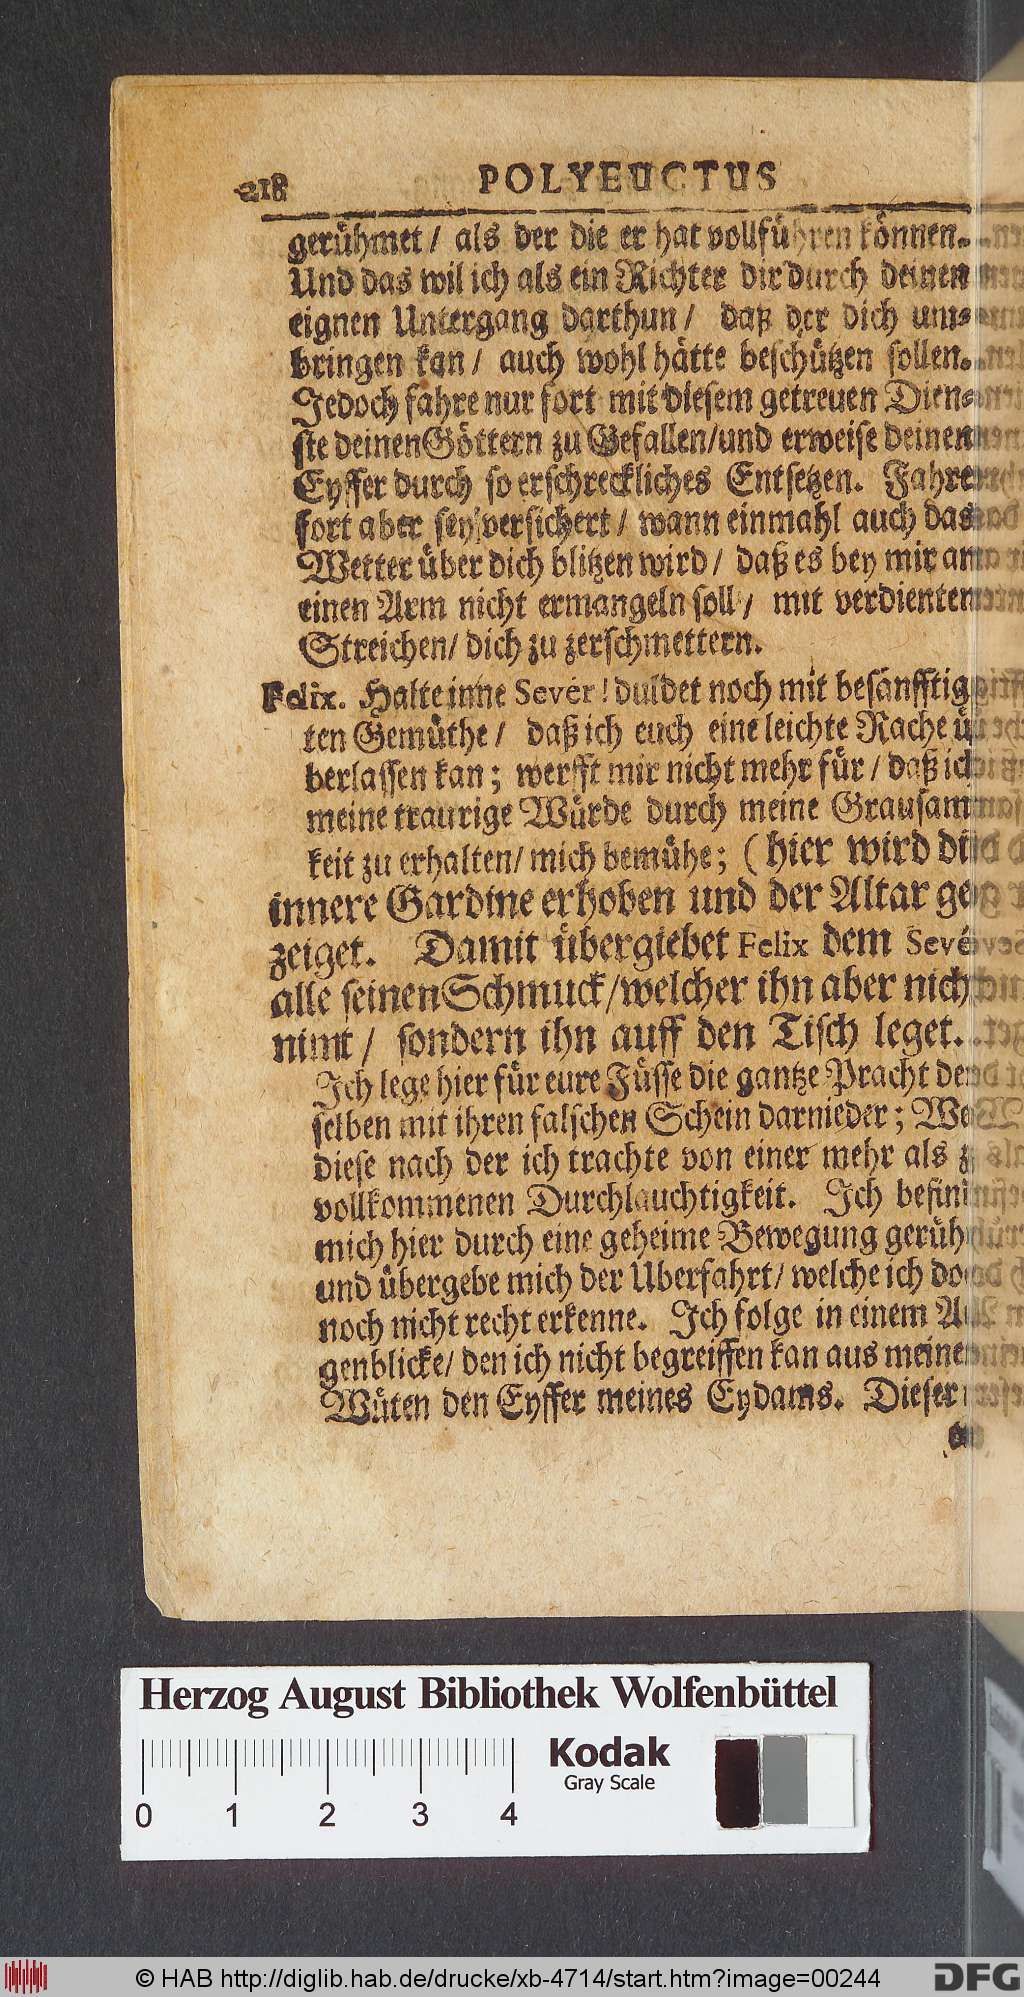 218 POLYEUCTUS
gerühmet / als der die er hat vollführen können.
Und das wil ich als ein Richter dir durch deinen
eignen Untergang darthun / daß der dich um-
bringen kan / auch wohl hätte beschützen sollen.
Jedoch fahre nur fort mit diesem getreuen Dien-
ste deinen Göttern zu Gefallen / und erweise deinen
Eyffer durch so erschreckliches Entsetzen. Fahre
fort aber sey versichert / wann einmahl auch das
Wetter über dich blitzen wird / daß es bey mir an
einen Arm nicht ermangeln soll / mit verdienten
Streichen / dich zu zerschmettern.
Felix. Halte inne Sever! duldet noch mit besänfftig
ten Gemüthe / daß ich euch eine leichte Rache ü
berlassen kan; werfft mir nicht mehr für / daß ich
meine traurige Würde durch meine Grausam
keit zu erhalten / mich bemühe; (hier wird die
innere Gardine erhoben und der Altar ge
zeiget. Damit übergiebet Felix dem Sevé
alle seinen Schmuck / welcher ihn aber nicht
nimt / sondern ihn auff den Tisch leget.
Ich lege hier für eure Füsse die gantze Pracht der
selben mit ihren falschen Schein darnieder;
diese nach der ich trachte von einer mehr als
vollkommenen Durchlauchtigkeit. Ich befin
mich hier durch eine geheime Bewegung gerüh
und übergebe mich der Uberfahrt / welche ich do
noch nicht recht erkenne. Ich folge in einem Au
genblicke / den ich nicht begreiffen kan aus meinen
Wüten den Eyffer meines Eydams. Dieser
Herzog August Bibliothek Wolfenbüttel
0 1 2 3 4
Kodak
Gray Scale
© HAB http://diglib.hab.de/drucke/xb-4714/start.htm?image=00244
DFG